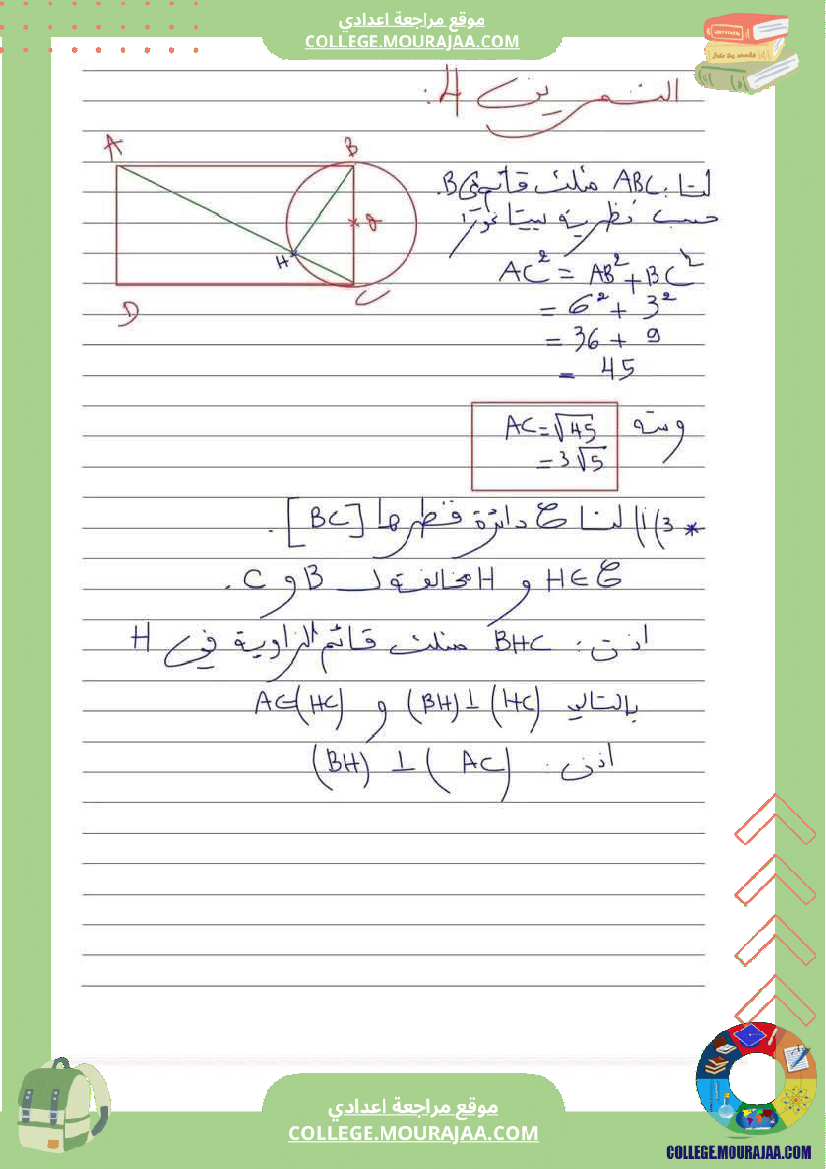 موقع مراجعة اعدادي
COLLEGE.MOURAJAA.COM
التمرين 4:
A
B
O
H
D
C
لنا: ABC مثلث قائم في B.
حسب نظرية بيتاغورا
AC² = AB² + BC²
= 6² + 3²
= 36 + 9
= 45
ومنه AC = √45
= 3√5
* 3) أ) لنا ح دائرة قطرها [BC].
H ∈ ح و H مخالفة لـ B و C.
اذن: BHC مثلث قائم الزاوية في H
بالتالي (HC) ⊥ (BH) و A∈(HC)
اذن: (AC) ⊥ (BH)
موقع مراجعة اعدادي
COLLEGE.MOURAJAA.COM
COLLEGE.MOURAJAA.COM